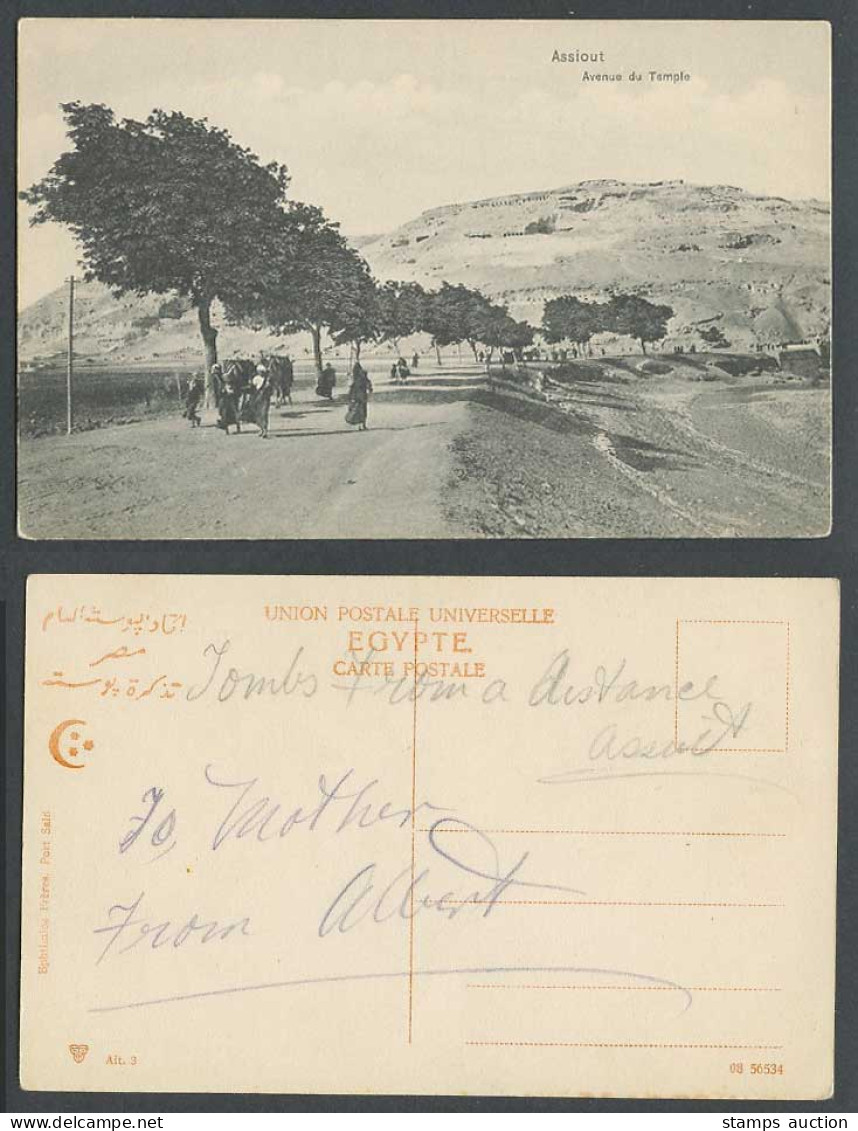 Assiout
Avenue du Temple
اتحاد البوسته العام
مصر
تذكرة بوسته
UNION POSTALE UNIVERSELLE
EGYPTE
CARTE POSTALE
Tombs From a distance
Assuit
To, Mother
From Albert
Ephtimios Frères, Port Said
Ait. 3
08 56534
stamps auction